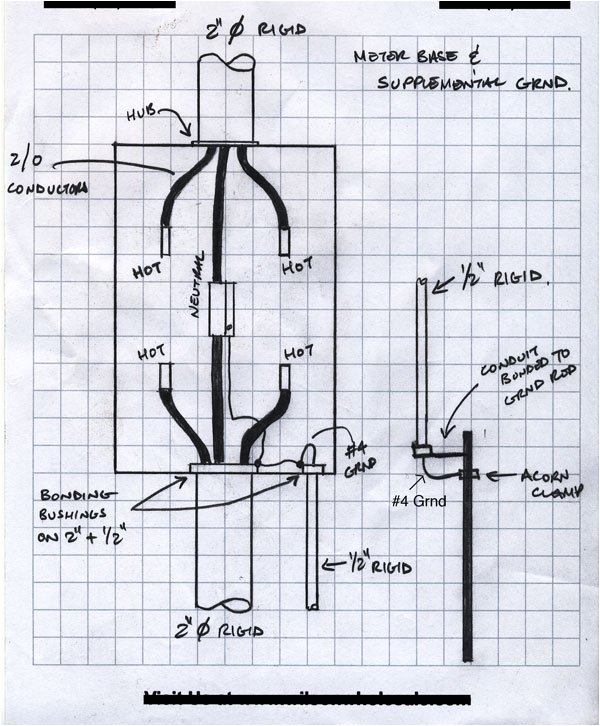 2" Ø RIGID
METER BASE &
SUPPLEMENTAL GRND.
HUB
2/0
CONDUCTORS
HOT
HOT
NEUTRAL
1/2" RIGID.
HOT
HOT
CONDUIT
BONDED TO
GRND ROD
#4
GRND
ACORN
CLAMP
#4 Grnd
BONDING
BUSHINGS
ON 2" + 1/2"
1/2" RIGID
2" Ø RIGID